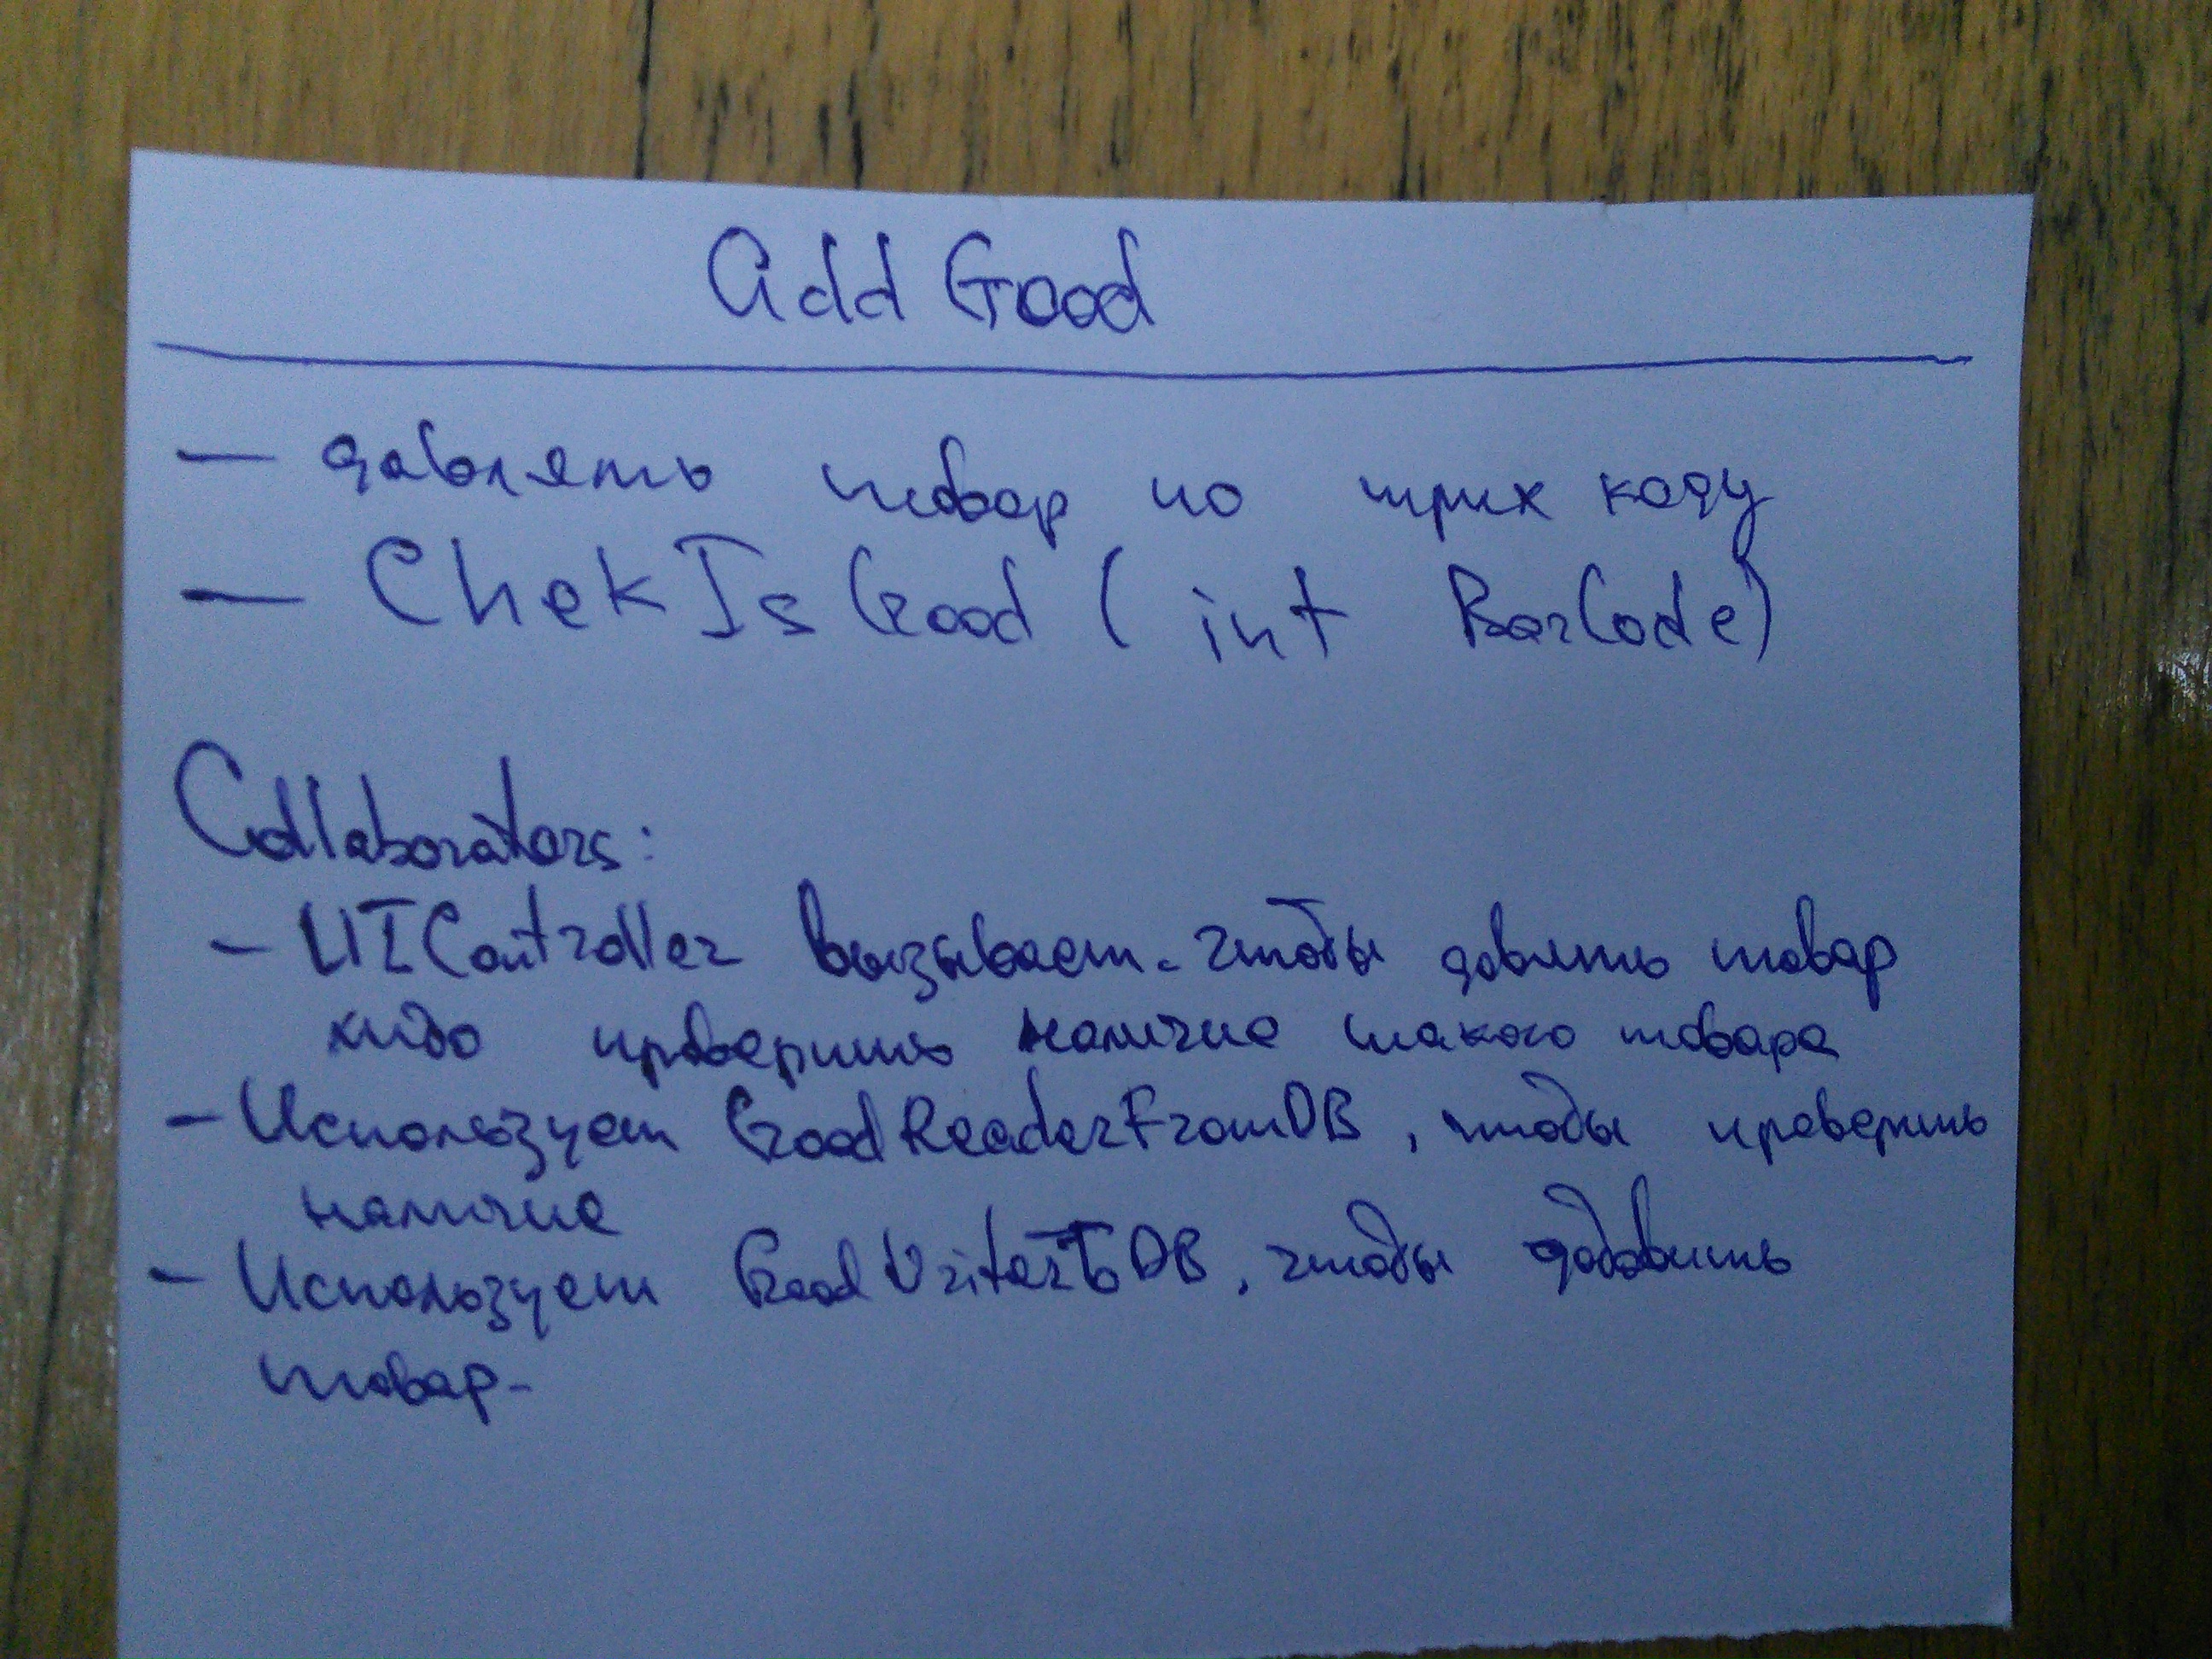 Add Good
— давлять товар по штрих коду
— ChekIsGood ( int BarCode)
Collaborators:
- UIController вызывает. чтобы довлять товар
либо проверить наличие такого товара
- Использует GoodReaderFromDB, чтобы проверить
наличие
- Использует GoodVriterToDB, чтобы добавить
товар.